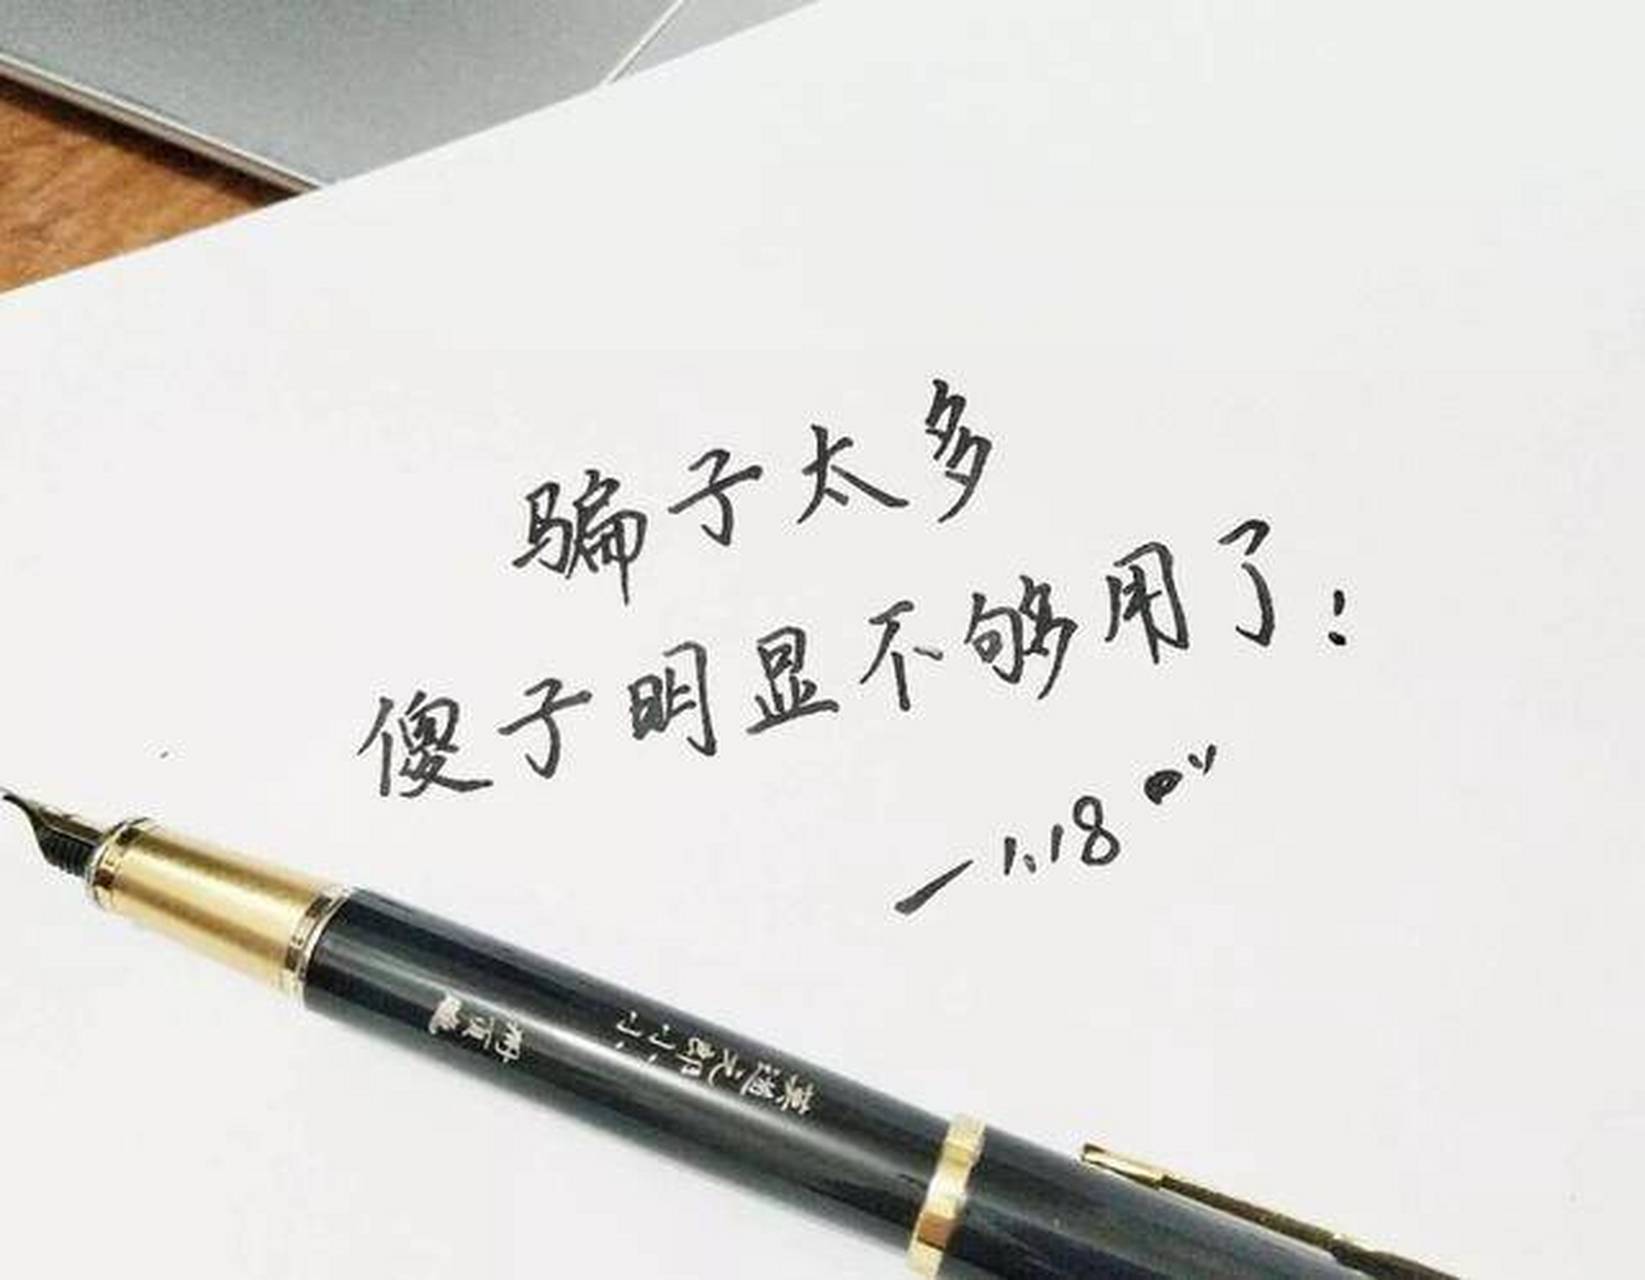 骗子太多
傻子明显不够用了!
—1.18